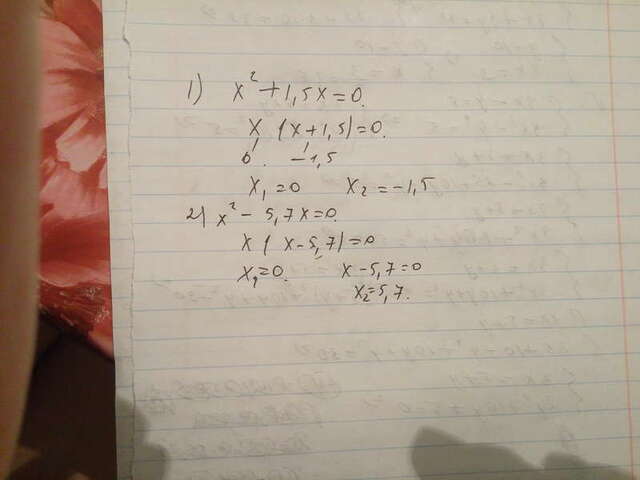 1) x² + 1,5x = 0.
x (x + 1,5) = 0.
0. -1,5
x₁ = 0 x₂ = -1,5
2) x² - 5,7x = 0.
x (x - 5,7) = 0
x₁ = 0. x - 5,7 = 0
x₂ = 5,7.